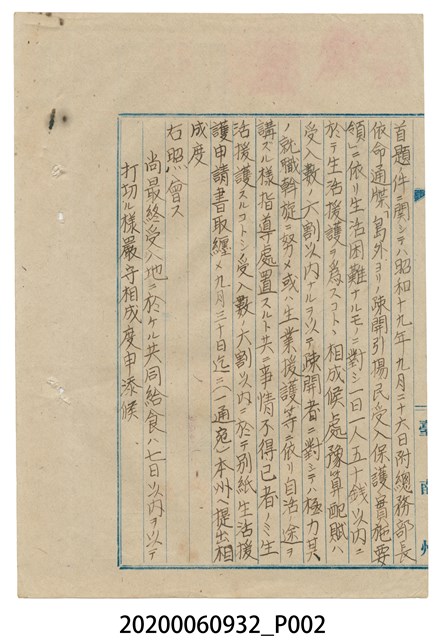 首題ノ件ニ関シテハ昭和十九年九月二十六日附總務部長
依命通牒「島外ヨリノ疎開引揚民受入保護實施要
領」ニ依リ生活困難ナルモノニ對シ一日一人五十錢以内ニ
於テ生活援護ヲ為スコトト相成候處豫算配賦ハ
受入數ノ六割以内ナルヲ以テ疎開者ニ對シテハ極力其
ノ就職斡旋ニ努メ或ハ生業援護等ニ依リ自活ノ途ヲ
講ズル樣指導處置スルト共ニ事情不得已者ノミ生
活援護スルコトトシ受入數ノ六割以内ニ於テ別紙生活援
護申請書取纏メ九月三十日迄ニ(一通宛)本州ヘ提出相
成度
右照會ス
尚最終受入地ニ於ケル共同給食ハ七日以内ヲ以テ
打切ル樣嚴守相成度申添候
臺南州
20200060932_P002